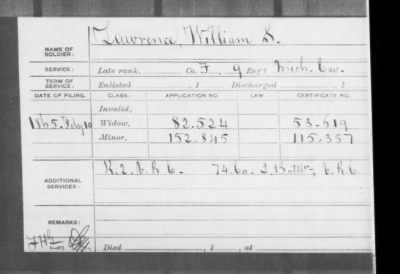 NAME OF SOLDIER: Lawrence, William S.
SERVICE: Late rank, Co. F, 9 Reg't Mich. Cav.
TERM OF SERVICE: Enlisted , 1 Discharged , 1
DATE OF FILING. CLASS. APPLICATION NO. LAW. CERTIFICATE NO.
Invalid,
1865. Feby 10 Widow, 82.524 53.619
Minor, 152.845 115.357
ADDITIONAL SERVICES: K. 2. V. R. C. 74. Co. 2. Batt'n, V. R. C.
REMARKS:
Died , 1 , at